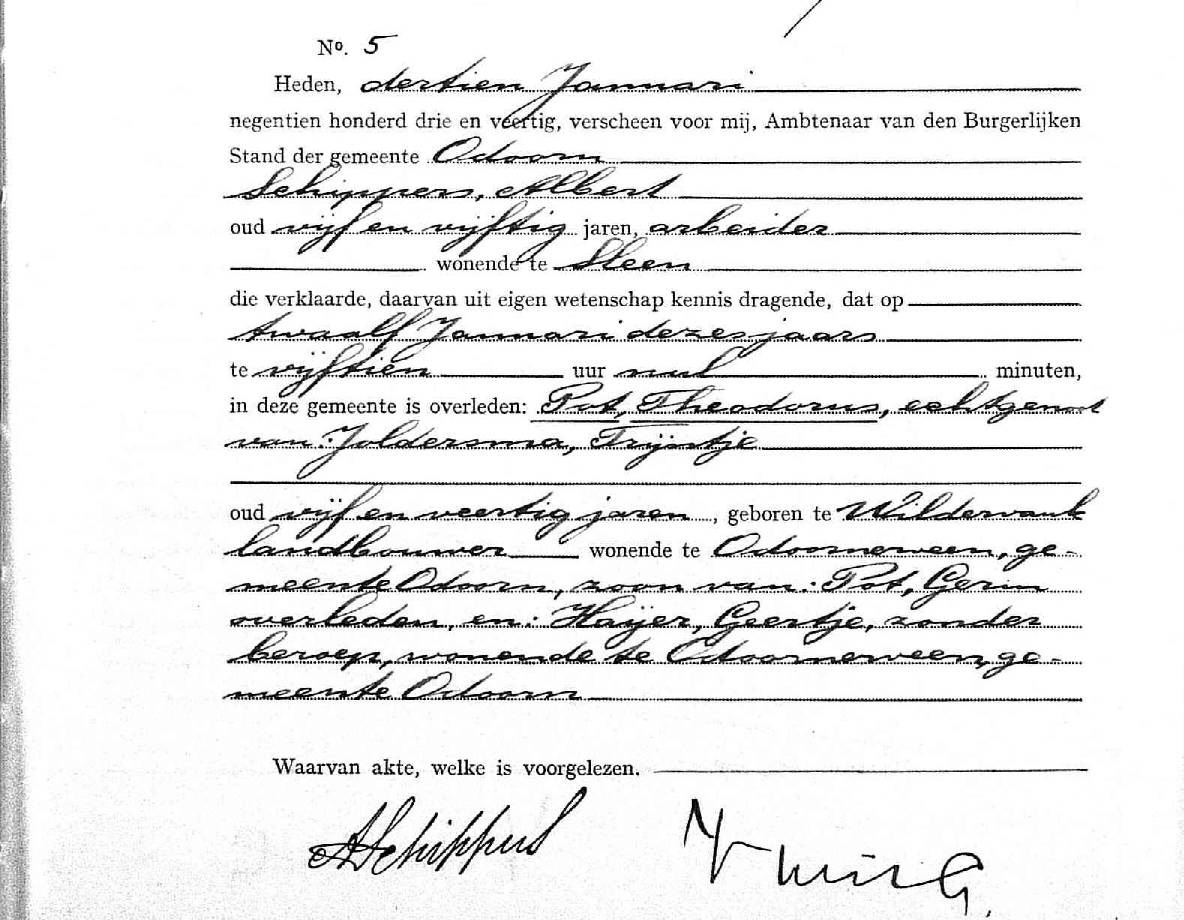 No. 5
Heden, dertien Januari
negentien honderd drie en veertig, verscheen voor mij, Ambtenaar van den Burgerlijken
Stand der gemeente Odoorn
Schippers, Albert
oud vijf en vijftig jaren, arbeider
wonende te Sleen
die verklaarde, daarvan uit eigen wetenschap kennis dragende, dat op
twaalf Januari dezes jaars
te vijftien uur nul minuten,
in deze gemeente is overleden: Pot, Theodorus, echtgenoot
van: Joldersma, Trijntje
oud vijf en veertig jaren, geboren te Wildervank
landbouwer wonende te Odoornerveen, ge-
meente Odoorn, zoon van: Pot, Gerin
overleden, en: Haijer, Geertje, zonder
beroep, wonende te Odoornerveen, ge-
meente Odoorn
Waarvan akte, welke is voorgelezen.
ASchippers